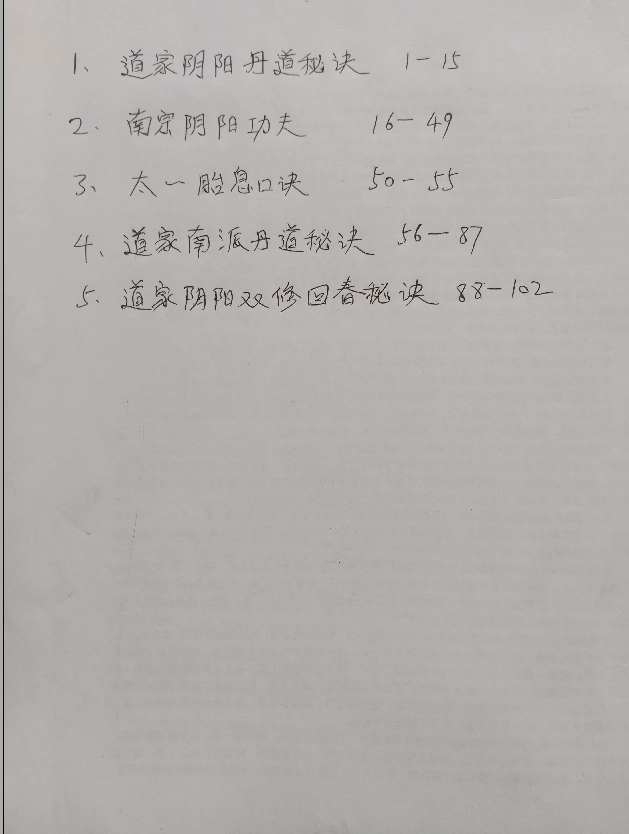 1、道家阴阳丹道秘诀 1-15
2、南宗阴阳功夫 16-49
3、太一胎息口诀 50-55
4、道家南派丹道秘诀 56-87
5、道家阴阳双修回春秘诀 88-102